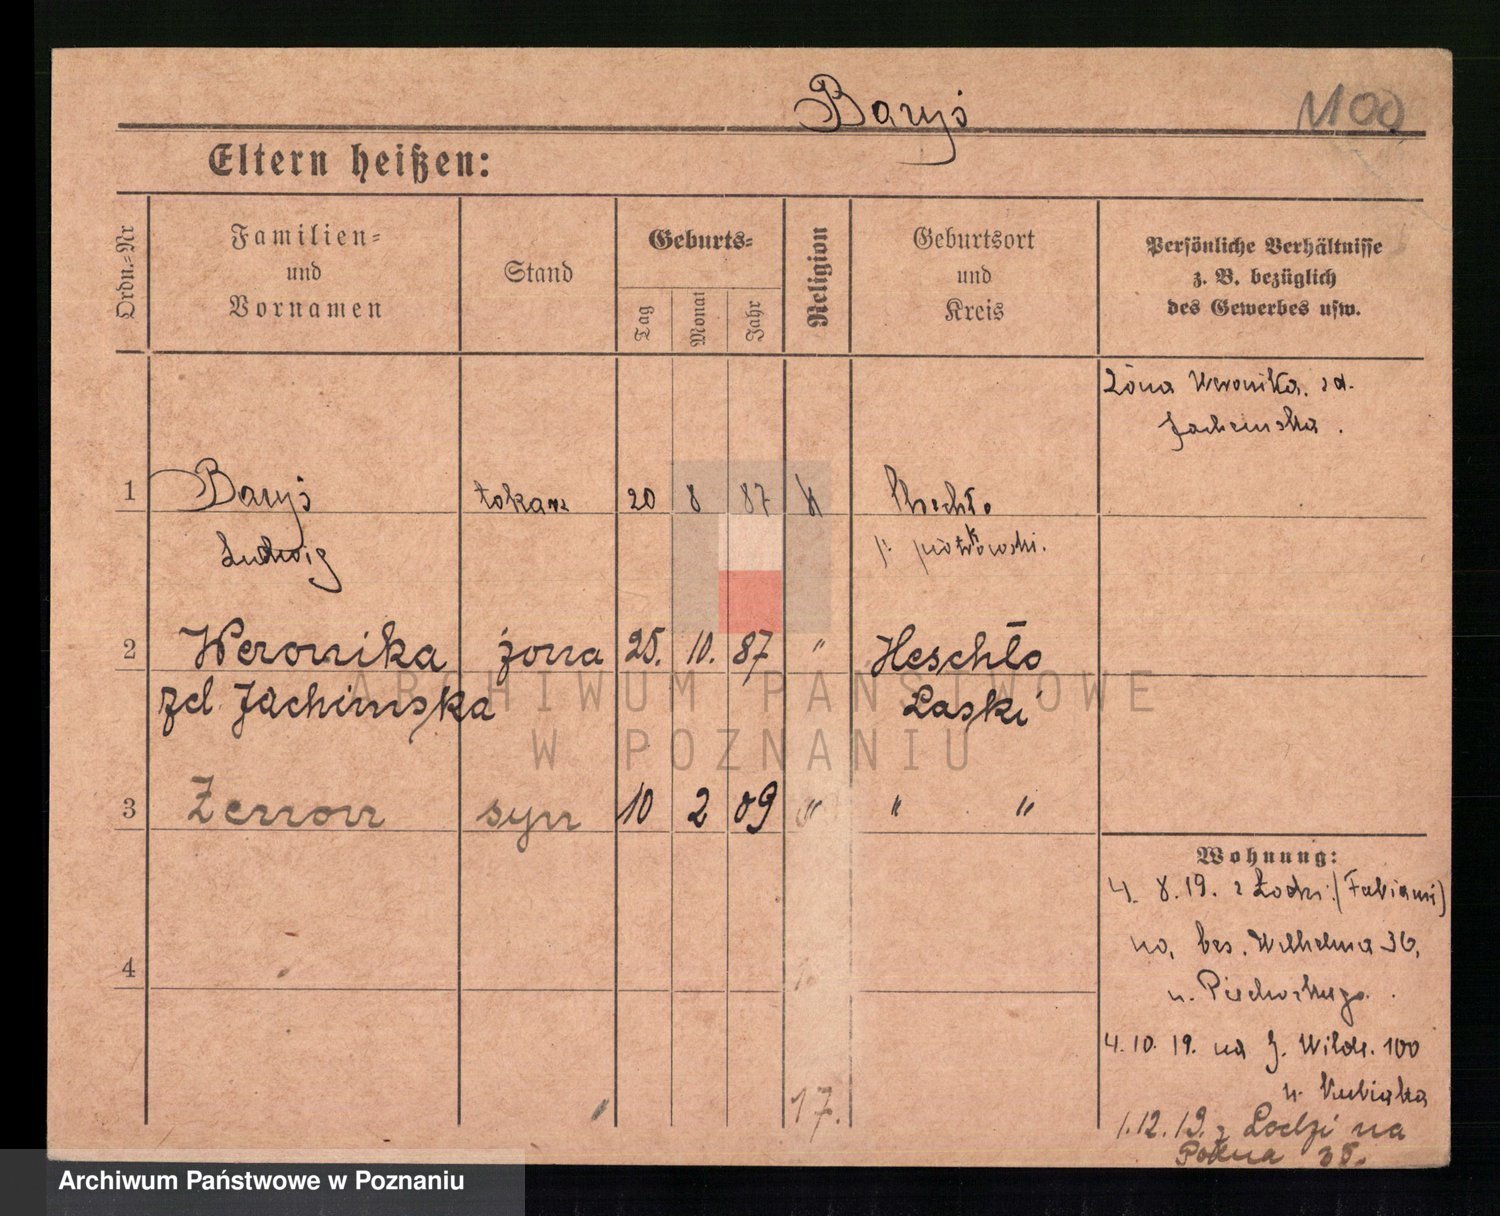 Baryś
Eltern heißen:
Ordn.-Nr
Familien-
und
Vornamen
Stand
Geburts-
Tag
Monat
Jahr
Religion
Geburtsort
und
Kreis
Persönliche Verhältnisse
z. B. bezüglich
des Gewerbes usw.
Żona Weronika, zd.
1 Baryś tokarz 20 8 87 k
Ludwig p. piotrkowski.
2 Weronika żona 25. 10. 87 " Heschło
zd Jachimska Łaski
3 Zenon syn 10 2 09 " " "
Wohnung:
4. 8. 19. z Łodzi (Fabianis)
na, Wilhelma 36,
u.
4. 10. 19. na G. Wilde. 100
u. Kubiaka
4
17.
1.12.19. z Łodzi na
35.
ARCHIWUM PAŃSTWOWE
W POZNANIU
Archiwum Państwowe w Poznaniu